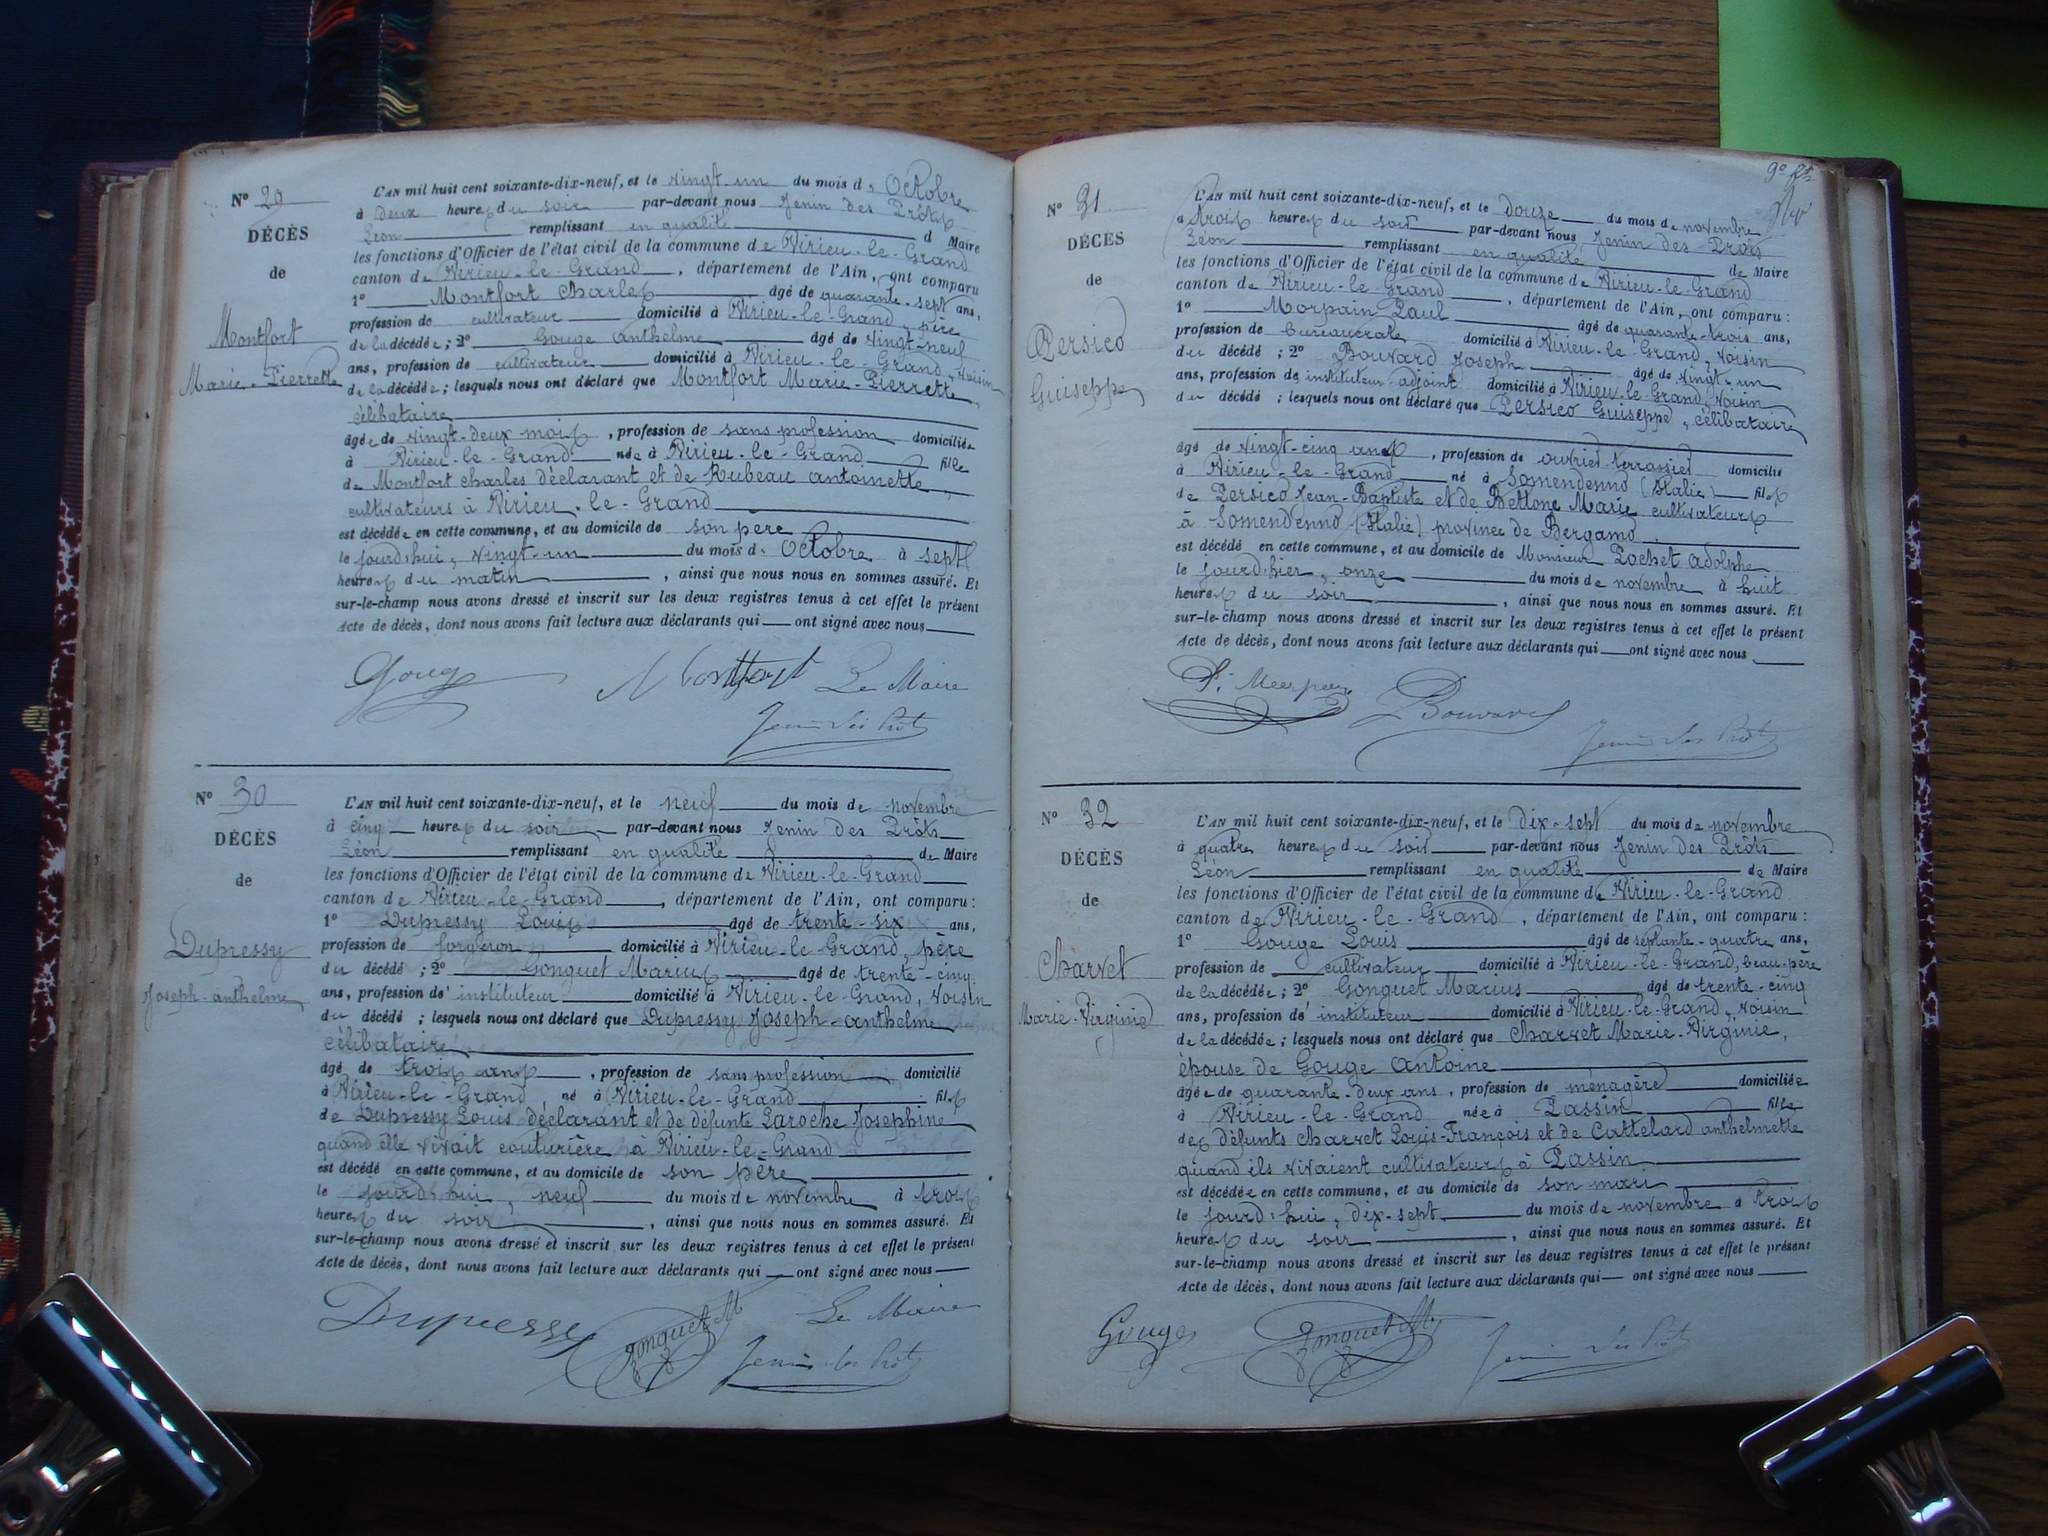 N° 29
DÉCÈS
de
Montfort
Marie-Pierrette
L'AN mil huit cent soixante-dix-neuf, et le vingt-un du mois d Octobre
à deux heures du soir par-devant nous Jenin des Prôts
Léon remplissant en qualité d Maire
les fonctions d'Officier de l'état civil de la commune de Virieu-le-Grand
canton de Virieu-le-Grand, département de l'Ain, ont comparu
1° Montfort Charles âgé de quarante-sept ans,
profession de cultivateur domicilié à Virieu-le-Grand, père
de la décédée; 2° Gouge Anthelme âgé de vingt-neuf
ans, profession de cultivateur domicilié à Virieu-le-Grand, voisin
de la décédée; lesquels nous ont déclaré que Montfort Marie-Pierrette,
célibataire
âgée de vingt-deux mois, profession de sans profession domiciliée
à Virieu-le-Grand née à Virieu-le-Grand fille
de Montfort Charles déclarant et de Rubeau Antoinette,
cultivateurs à Virieu-le-Grand
est décédée en cette commune, et au domicile de son père
le jourd'hui, vingt-un du mois d' Octobre à sept
heures du matin, ainsi que nous nous en sommes assuré. Et
sur-le-champ nous avons dressé et inscrit sur les deux registres tenus à cet effet le présent
Acte de décès, dont nous avons fait lecture aux déclarants qui ont signé avec nous
Gouge Montfort Le Maire
Jenin des Prôts
N° 30
DÉCÈS
de
Dupressy
Joseph-anthelme
L'AN mil huit cent soixante-dix-neuf, et le neuf du mois de novembre
à cinq heures du soir par-devant nous Jenin des Prôts
Léon remplissant en qualité de Maire
les fonctions d'Officier de l'état civil de la commune de Virieu-le-Grand
canton de Virieu-le-Grand, département de l'Ain, ont comparu:
1° Dupressy Louis âgé de trente-six ans,
profession de forgeron domicilié à Virieu-le-Grand, père
du décédé; 2° Gonguet Marius âgé de trente-cinq
ans, profession d' instituteur domicilié à Virieu-le-Grand, voisin
du décédé; lesquels nous ont déclaré que Dupressy Joseph-anthelme
célibataire
âgé de trois ans, profession de sans profession domicilié
à Virieu-le-Grand né à Virieu-le-Grand fils
de Dupressy Louis déclarant et de défunte Laroche Joséphine
quand elle vivait couturière à Virieu-le-Grand
est décédé en cette commune, et au domicile de son père
le jourd'hui, neuf du mois de novembre à trois
heures du soir, ainsi que nous nous en sommes assuré. Et
sur-le-champ nous avons dressé et inscrit sur les deux registres tenus à cet effet le présent
Acte de décès, dont nous avons fait lecture aux déclarants qui ont signé avec nous
Dupressy Gonguet M Le Maire
Jenin des Prôts
N° 31
DÉCÈS
de
Persico
Guiseppe
L'AN mil huit cent soixante-dix-neuf, et le douze du mois de novembre
à trois heures du soir par-devant nous Jenin des Prôts
Léon remplissant en qualité de Maire
les fonctions d'Officier de l'état civil de la commune de Virieu-le-Grand
canton de Virieu-le-Grand, département de l'Ain, ont comparu:
1° Morpain Paul âgé de quarante-trois ans,
profession de bureaucrate domicilié à Virieu-le-Grand, voisin
du décédé; 2° Bouvard Joseph âgé de vingt-un
ans, profession d instituteur adjoint domicilié à Virieu-le-Grand, voisin
du décédé; lesquels nous ont déclaré que Persico Guiseppe, célibataire
âgé de vingt-cinq ans, profession de ouvrier terrassier domicilié
à Virieu-le-Grand né à Somendenno (Italie) fils
de Persico Jean-Baptiste et de Bettone Marie cultivateurs
à Somendenno (Italie) province de Bergamo.
est décédé en cette commune, et au domicile de Monsieur Pochet Adolphe
le jourd'hier, onze du mois de novembre à huit
heures du soir, ainsi que nous nous en sommes assuré. Et
sur-le-champ nous avons dressé et inscrit sur les deux registres tenus à cet effet le présent
Acte de décès, dont nous avons fait lecture aux déclarants qui ont signé avec nous.
Bouvard
Jenin des Prôts
N° 32
DÉCÈS
de
Charvet
Marie-Virginie
L'AN mil huit cent soixante-dix-neuf, et le dix-sept du mois de novembre
à quatre heures du soir par-devant nous Jenin des Prôts
Léon remplissant en qualité de Maire
les fonctions d'Officier de l'état civil de la commune de Virieu-le-Grand
canton de Virieu-le-Grand, département de l'Ain, ont comparu:
1° Gouge Louis âgé de septante-quatre ans,
profession de cultivateur domicilié à Virieu-le-Grand, beau-père
de la décédée; 2° Gonguet Marius âgé de trente-cinq
ans, profession d' instituteur domicilié à Virieu-le-Grand, voisin
de la décédée; lesquels nous ont déclaré que Charvet Marie-Virginie,
épouse de Gouge Antoine
âgée de quarante-deux ans, profession de ménagère domiciliée
à Virieu-le-Grand née à Passin fille
des défunts Charvet Louis-François et de Cattelard anthelmette
quand ils vivaient cultivateurs à Passin
est décédée en cette commune, et au domicile de son mari
le jourd'hui, dix-sept du mois de novembre à trois
heures du soir, ainsi que nous nous en sommes assuré. Et
sur-le-champ nous avons dressé et inscrit sur les deux registres tenus à cet effet le présent
Acte de décès, dont nous avons fait lecture aux déclarants qui ont signé avec nous
Gouge Gonguet M Jenin des Prôts